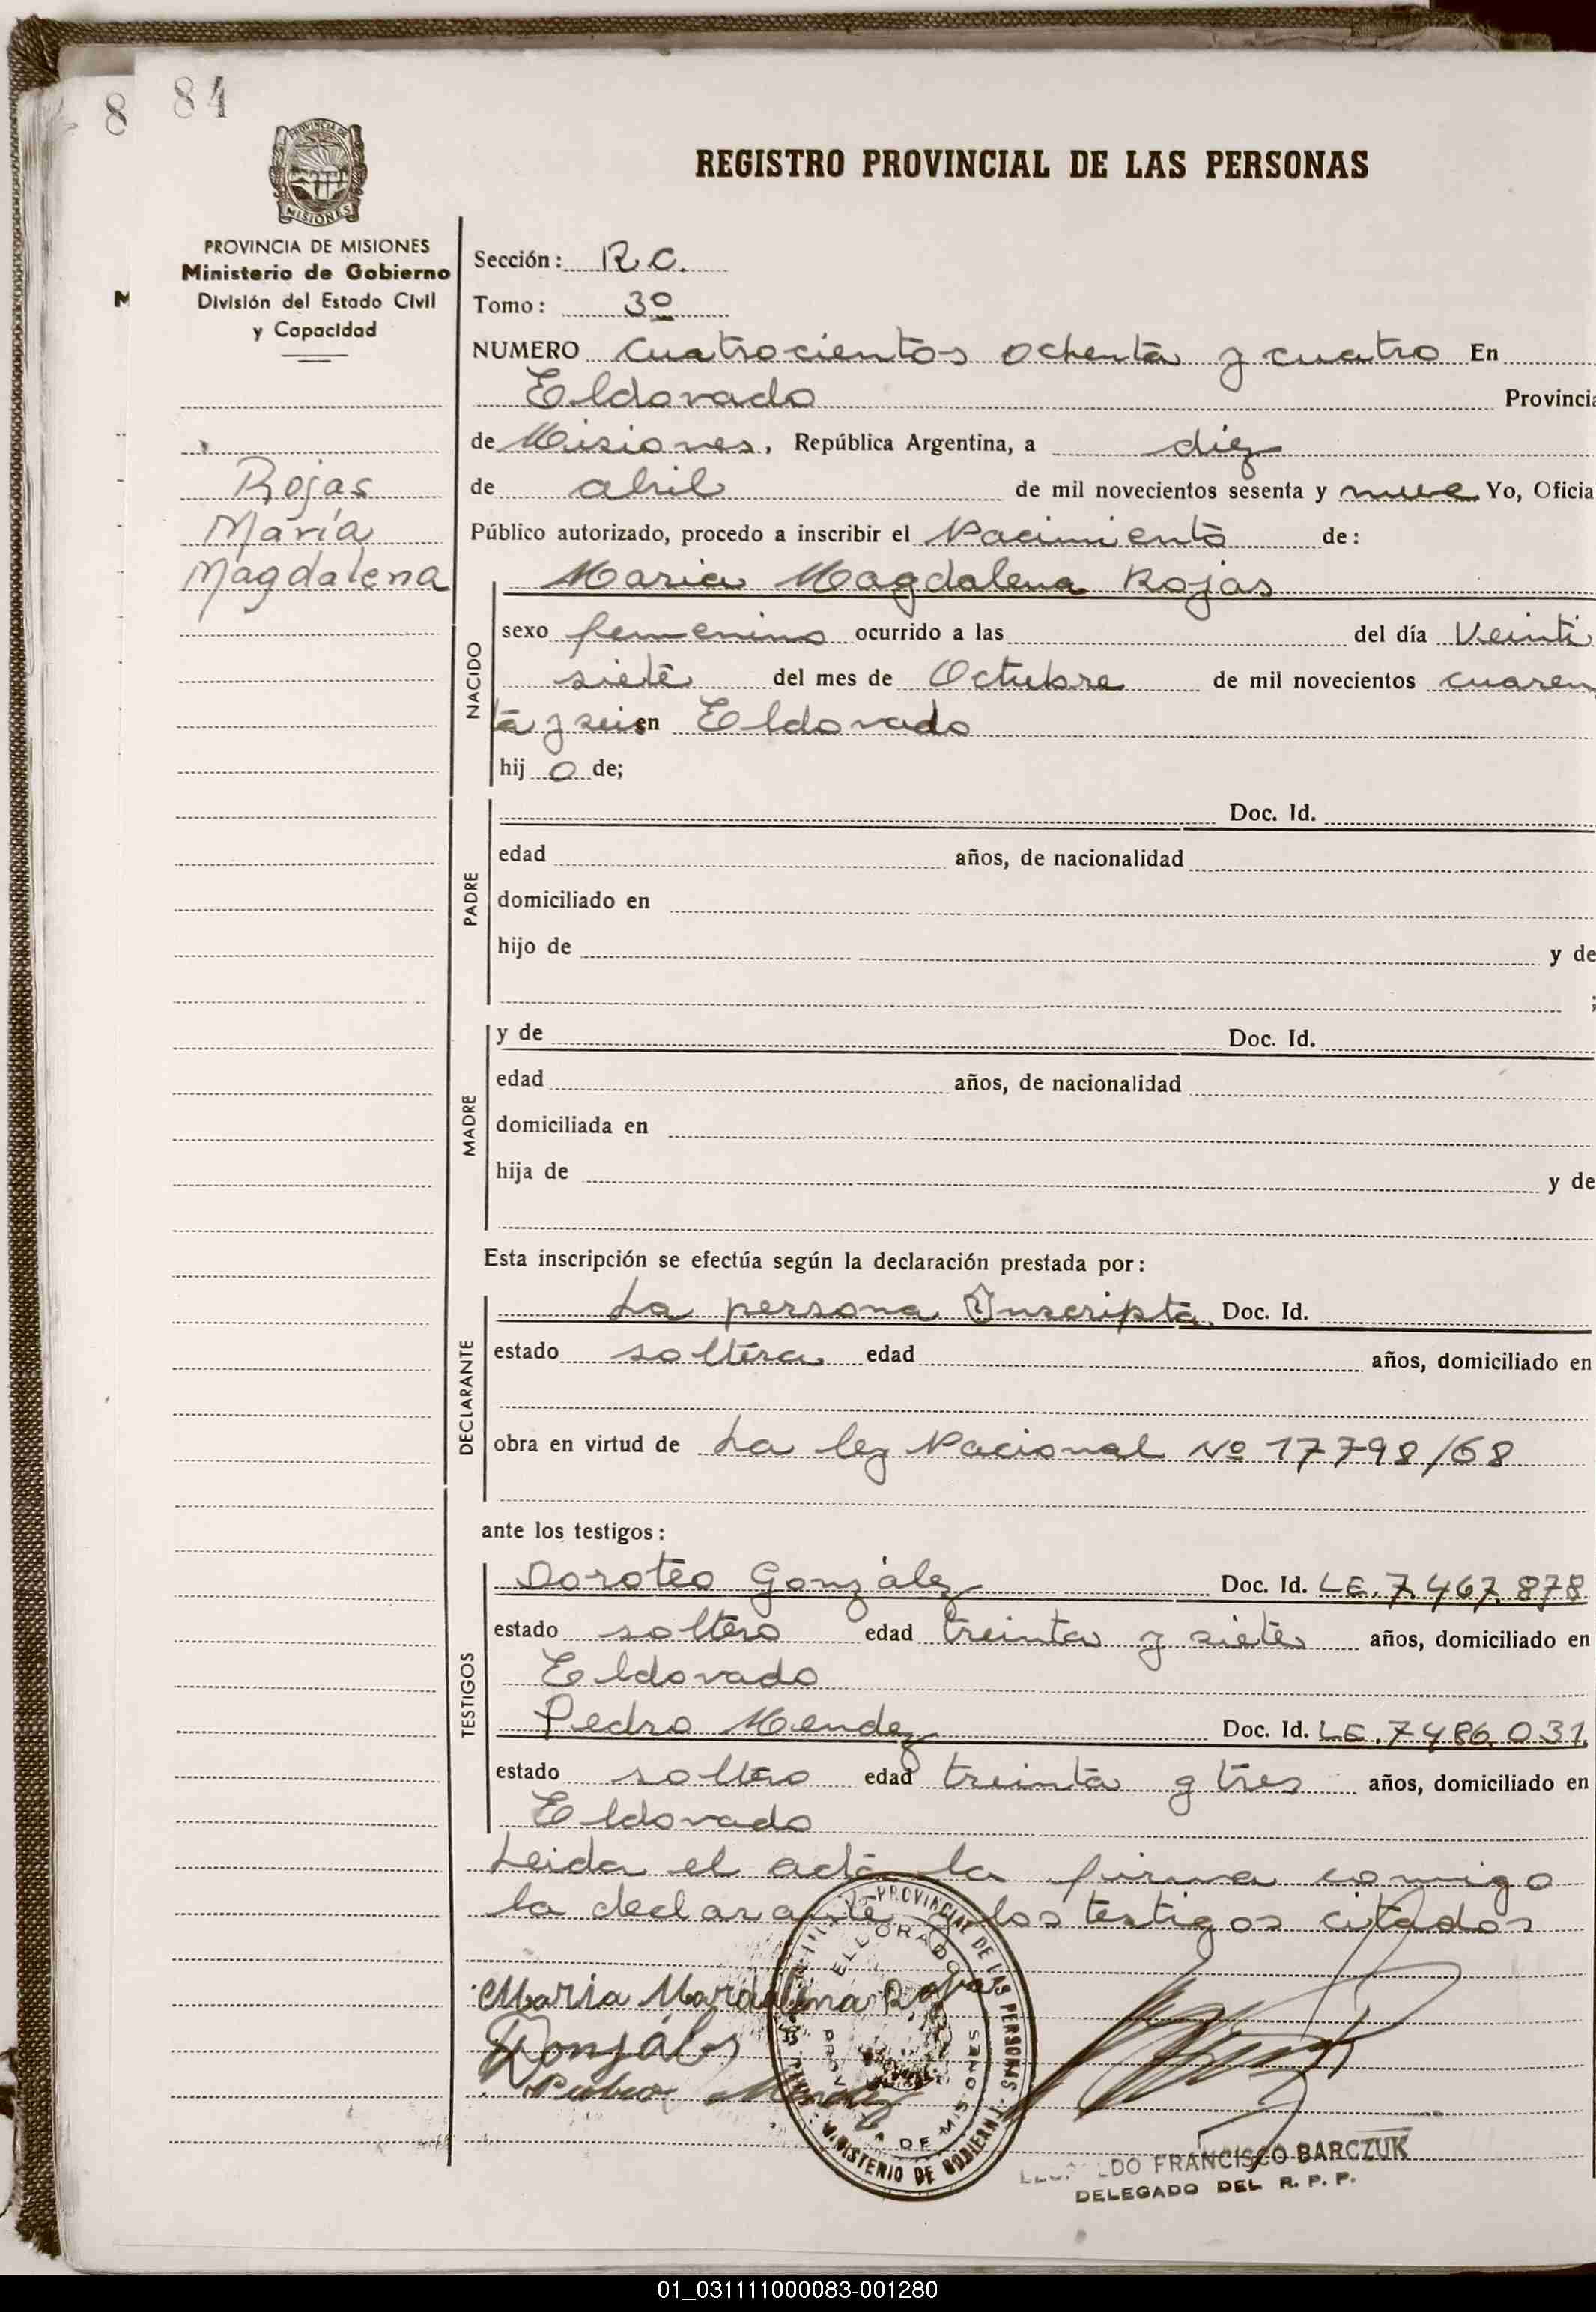 8 84
PROVINCIA DE
MISIONES
REGISTRO PROVINCIAL DE LAS PERSONAS
PROVINCIA DE MISIONES
Ministerio de Gobierno
División del Estado Civil
y Capacidad
M
Rojas
María
Magdalena
Sección: R.C.
Tomo: 3º
NUMERO Cuatrocientos ochenta y cuatro En
Eldorado Provincia
de Misiones, República Argentina, a diez
de abril de mil novecientos sesenta y nueve Yo, Oficia
Público autorizado, procedo a inscribir el Nacimiento de:
NACIDO
Maria Magdalena Rojas
sexo femenino ocurrido a las del día Veinti
siete del mes de Octubre de mil novecientos cuaren
ta y seis en Eldorado
hij o de;
PADRE
Doc. Id.
edad años, de nacionalidad
domiciliado en
hijo de y de
;
MADRE
y de Doc. Id.
edad años, de nacionalidad
domiciliada en
hija de y de
Esta inscripción se efectúa según la declaración prestada por:
DECLARANTE
La persona Inscripta. Doc. Id.
estado soltera edad años, domiciliado en
obra en virtud de La ley Nacional Nº 17798/68
ante los testigos:
TESTIGOS
Doroteo González Doc. Id. L.E. 7.467.878
estado soltero edad treinta y siete años, domiciliado en
Eldorado
Pedro Mendez Doc. Id. L.E. 7486.031.
estado soltero edad treinta y tres años, domiciliado en
Eldorado
Leida el acta la firma comigo
la declarante y los testigos citados
Maria Magdalena Rojas
González
Pedro Mendez
PROVINCIAL DE LAS PERSONAS
ELDORADO
PROV DE MISIONES
MINISTERIO DE GOBIERNO
FRANCISCO BARCZUK
DELEGADO DEL R. P. P.
01_031111000083-001280